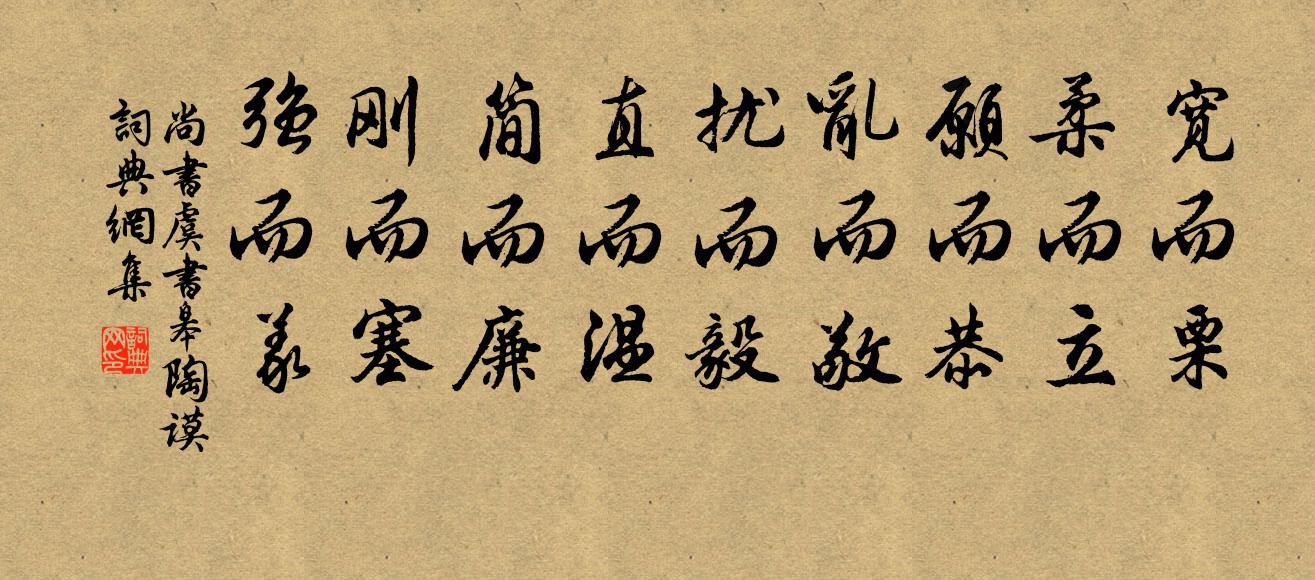 寬而栗
柔而立
願而恭
亂而敬
扰而毅
直而温
简而廉
刚而塞
強而義
尚書虞書皋陶謨
詞典網集
詞典网印